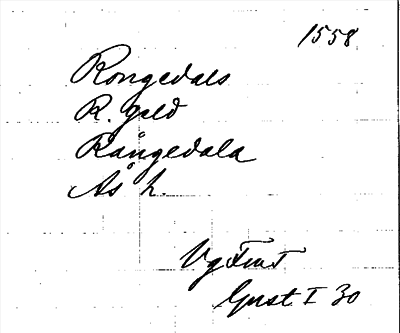 1558
Rongedals
R. gäld
Rångedala
Ås h.
Vg
Gust I 30